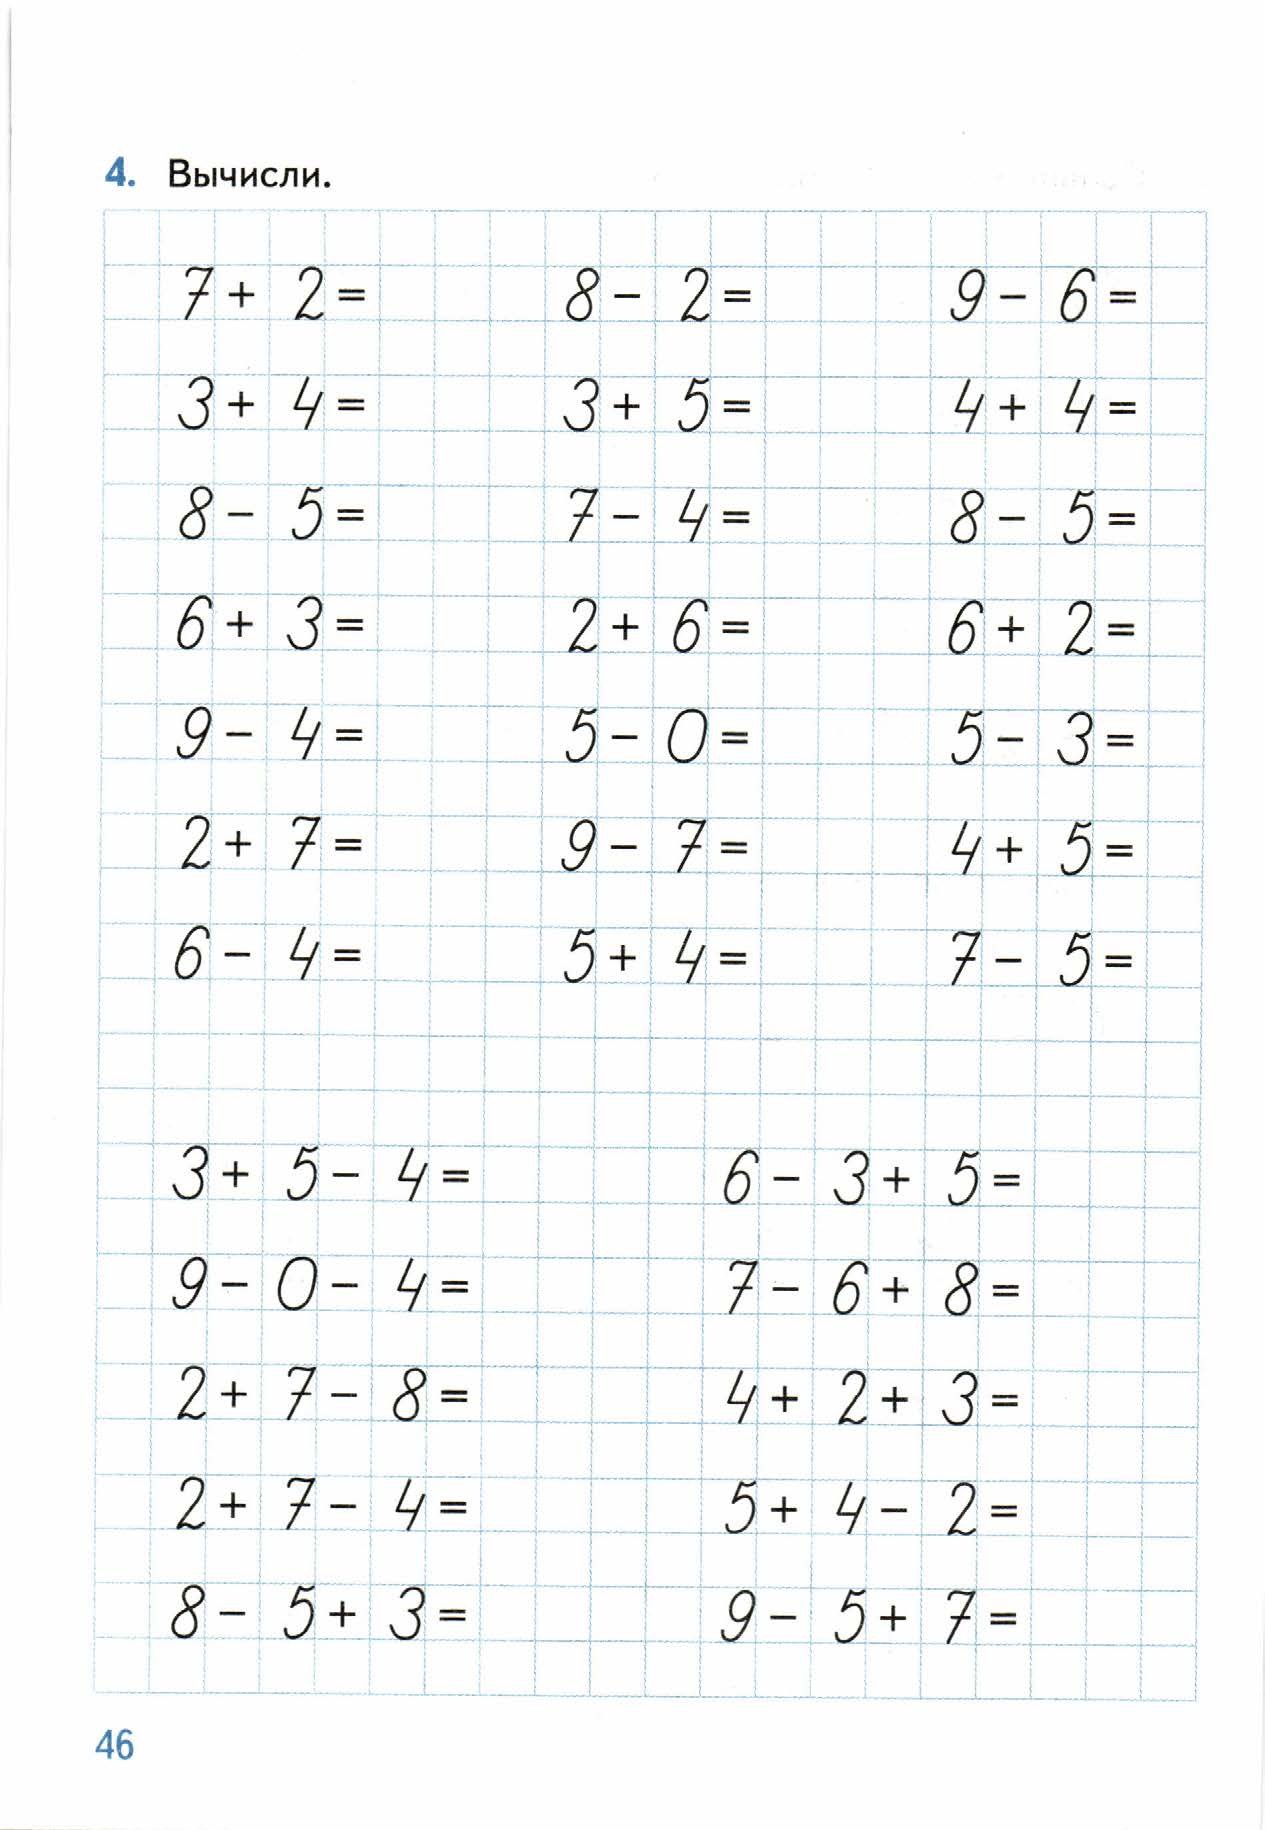 4. Вычисли.
7 + 2 = 8 - 2 = 9 - 6 =
3 + 4 = 3 + 5 = 4 + 4 =
8 - 5 = 7 - 4 = 8 - 5 =
6 + 3 = 2 + 6 = 6 + 2 =
9 - 4 = 5 - 0 = 5 - 3 =
2 + 7 = 9 - 7 = 4 + 5 =
6 - 4 = 5 + 4 = 7 - 5 =
3 + 5 - 4 = 6 - 3 + 5 =
9 - 0 - 4 = 7 - 6 + 8 =
2 + 7 - 8 = 4 + 2 + 3 =
2 + 7 - 4 = 5 + 4 - 2 =
8 - 5 + 3 = 9 - 5 + 7 =
46